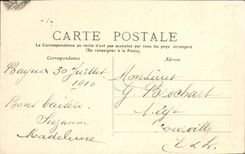 CARTE POSTALE
La Correspondance au recto n'est pas acceptée par tous les pays étrangers
(Se renseigner à la Poste)
Correspondance
Adresse
Bayeux 30 Juillet
1910
Bons baisers
Suzanne
Madeleine
Monsieur
G Brochart